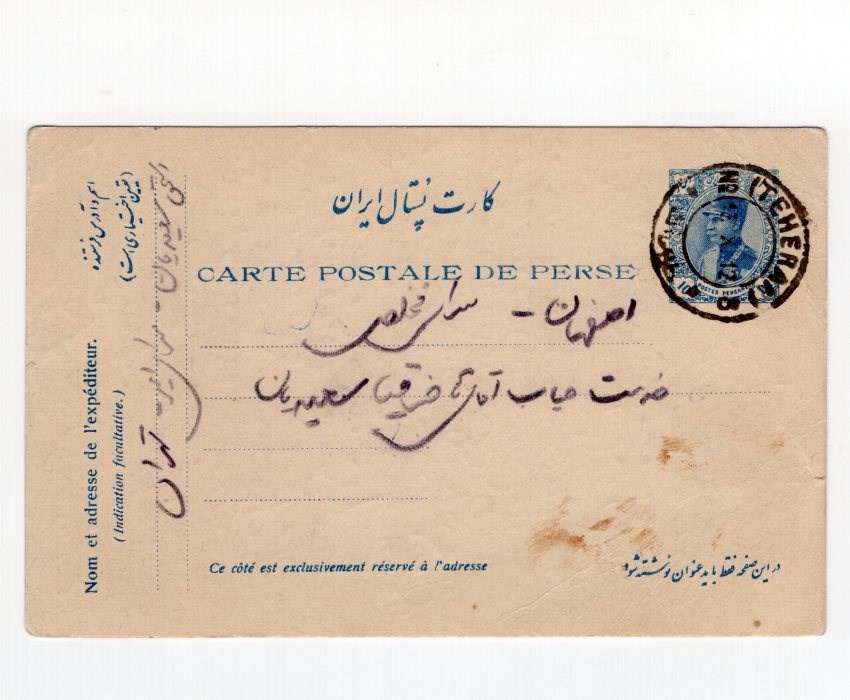 کارت پُستال ایران
CARTE POSTALE DE PERSE
اصفهان - سرای مخلص
خدمت جناب آقای سعیدیان
Ce côté est exclusivement réservé à l'adresse
در این صفحه فقط باید عنوان نوشته شود
اسم و آدرس فرستنده
(تعیین اختیاری است)
Nom et adresse de l'expéditeur.
(Indication facultative.)
سعیدیان - سرای
تهران
POSTES PERSANES
10
(TEHERAN)